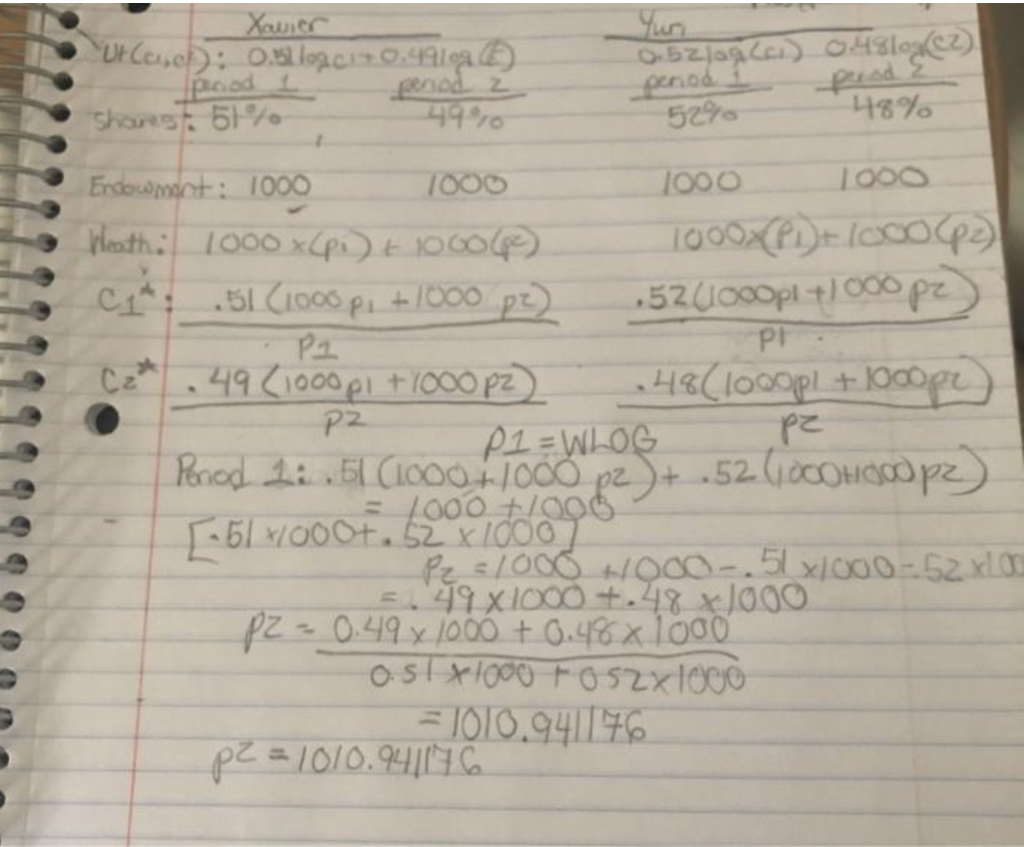 Xavier Yun
Ut(c1,c2): 0.51logc1+0.49log(t) 0.52log(c1) 0.48log(c2)
period 1 period 2 period 1 period 2
Shares: 51% 49% 52% 48%
Endowment: 1000 1000 1000 1000
Weath: 1000 x(p1) + 1000(p2) 1000x(P1)+1000(p2)
C1*: .51(1000p1 +1000 p2) .52(1000p1+1000p2)
P1 p1
C2* .49(1000p1 +1000p2) .48(1000p1+1000p2)
p2 p2
P1 = WLOG
Period 1: .51(1000+1000 p2)+ .52(1000+1000p2)
= 1000 +1000
[.51x1000+.52 x1000]
P2 =1000 +1000-.51x1000-.52x100
=.49x1000+.48x1000
p2 = 0.49x1000 + 0.48x1000
0.51x1000 + 0.52x1000
=1010.941176
p2 =1010.941176